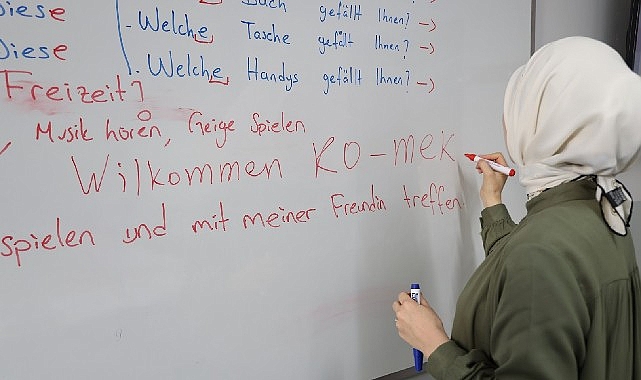 Diese - Welche Buch gefällt Ihnen? →
Diese Tasche gefällt Ihnen? →
. Welche Handys gefällt Ihnen? →
[Freizeit]
Musik hören, Geige Spielen
Wilkommen KO-MEK
spielen und mit meiner Freundin treffen.